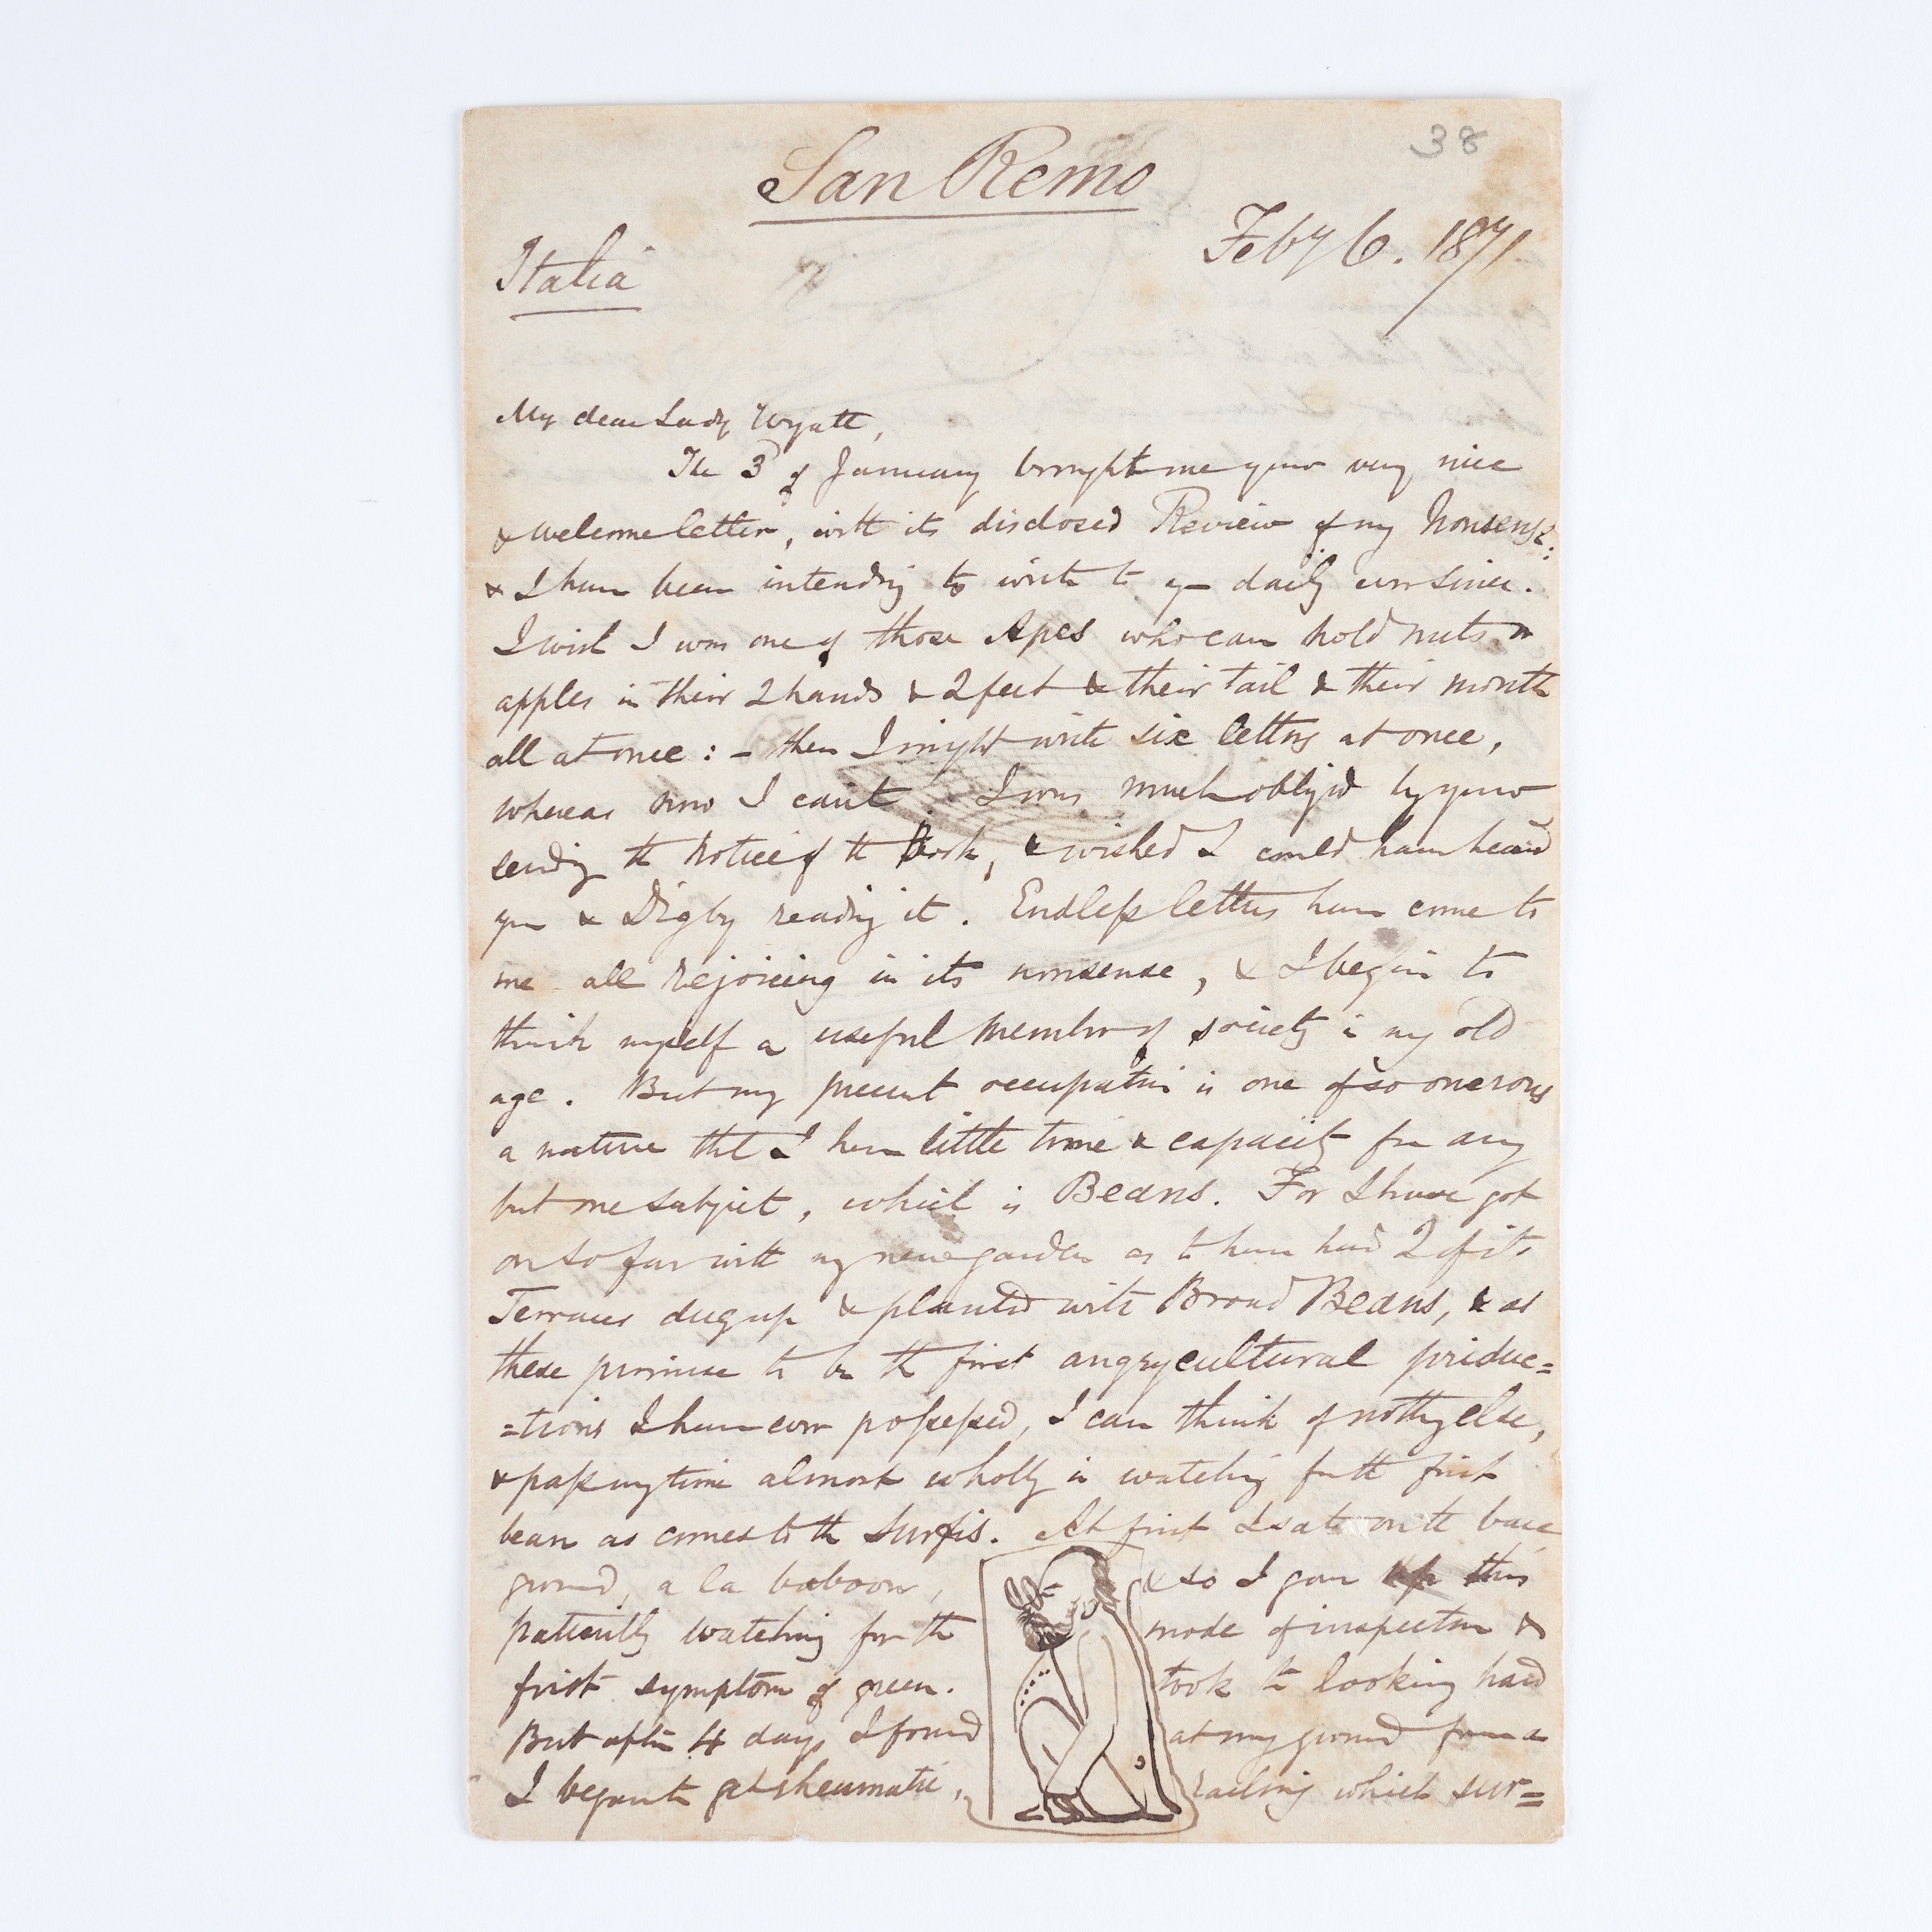 38
San Remo
Italia
Feby 6. 1871
My dear Lady Wyatt,
The 3d of January brought me your very nice
& welcome letter, with its disclosed Review of my Nonsense:
& I have been intending to write to you daily ever since.
I wish I was one of those Apes who can hold nuts or
apples in their 2 hands & 2 feet & their tail & their mouth
all at once : – then I might write six letters at once,
whereas now I can't. I was much obliged by your
sending the Notice of the Book, & wished I could have heard
you & Digby reading it. Endless letters have come to
me all rejoicing in its nonsense, & I begin to
think myself a useful member of society in my old
age. But my present occupation is one of so onerous
a nature that I have little time & capacity for any
but one subject, which is Beans. For I have got
on so far with my new garden as to have had 2 of its
Terraces dug up & planted with Broad Beans, & as
these promise to be the first angrycultural produc=
=tions I have ever possessed, I can think of nothing else,
& pass my time almost wholly in watching for the first
bean as comes to the surfis. At first I sate on the bare
ground, a la baboon,
patiently watching for the
first symptom of green.
But after 4 days I found
I began to get rheumatic,
& so I gave up this
mode of inspection &
took to looking hard
at my ground from a
railing which sur=